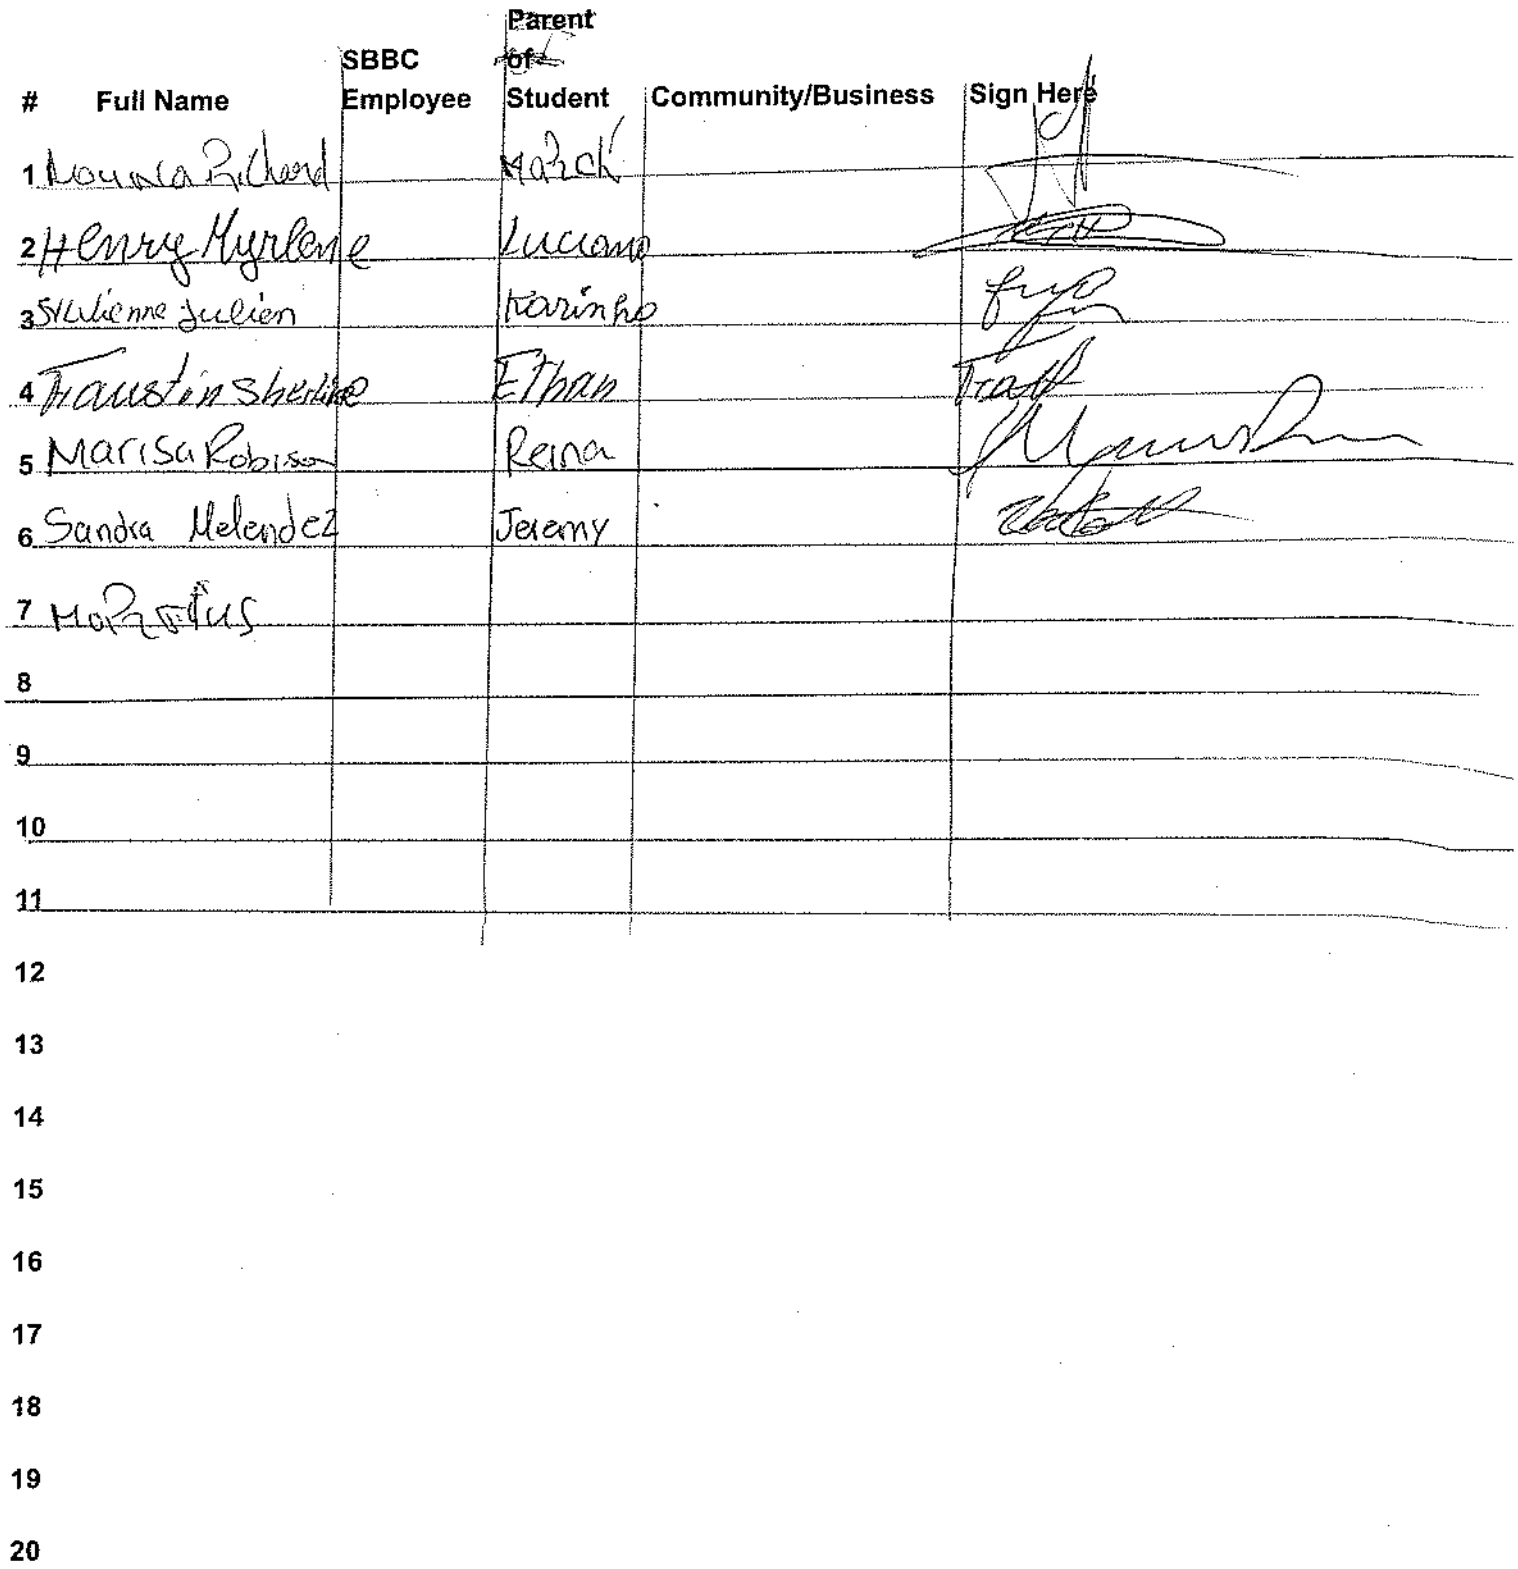 Parent
SBBC of
# Full Name Employee Student Community/Business Sign Here
1 Richard March
2 Henry Myrlene Luciano
3 Julien Karinho
4 Faustin Sherline Ethan
5 Marisa Robison Reina
6 Sandra Melendez Jeremy
7
8
9
10
11
12
13
14
15
16
17
18
19
20